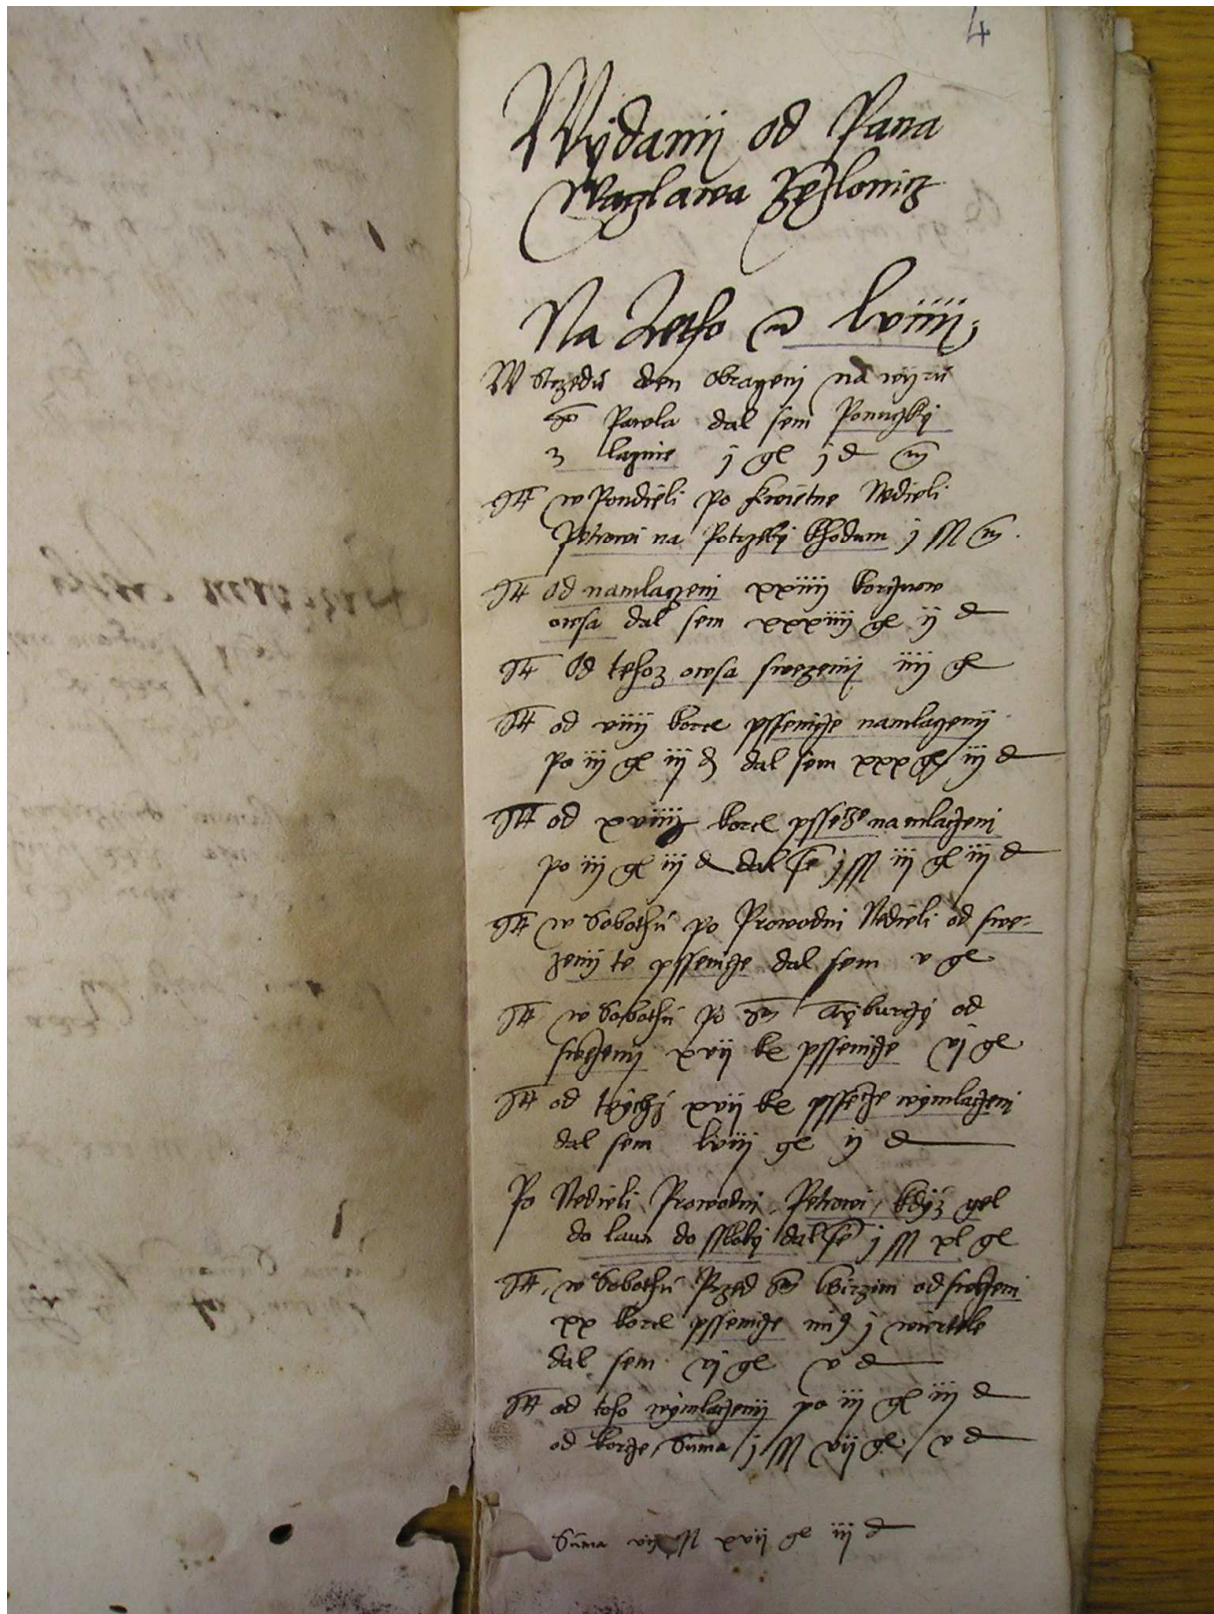 4
Wydanij od Pana
Waczlawa
Na letho lviiij
W Strzedu den obraczeni na wijru
S Pawla dal sem
z laznie j gl j d
Jtt w Pondieli po kwietne Nedieli
Petrowi na Potrzeby khodum j ss m
Jtt od namlaczeni xxiiij korczuow
owsa dal sem xxxiiij gl ij d
Jtt od tehoz owsa swezenij iiij gl
Jtt od viiij korcl pssenicze namlaczenij
po iij gl iij d dal sem xxx gl iij d
Jtt od xviiij korcl psse namlaczeni
po iij gl iij d dal se j ss iij gl iij d
Jtt w Sobothu po Prowodni Nedieli od swe-
zenij te pssenicze dal sem v gl
Jtt w Sobothu po S od
swezenij xvij ke pssenicze vj gl
Jtt od tiychz xvij ke psseicze wymlaczeni
dal sem lviij gl ij d
Po Nedieli Prowodni Petrowi kdyz gel
do laun do sskoly dal se j ss xl gl
Jtt w Sobothu Przed S od swezeni
xx korcl pssenicze j wiertele
dal sem vj gl v d
Jtt od toho wymlaczenij po iij gl iij d
od korcze Suma j ss vij gl v d
Suma vij ss xvij gl iij d